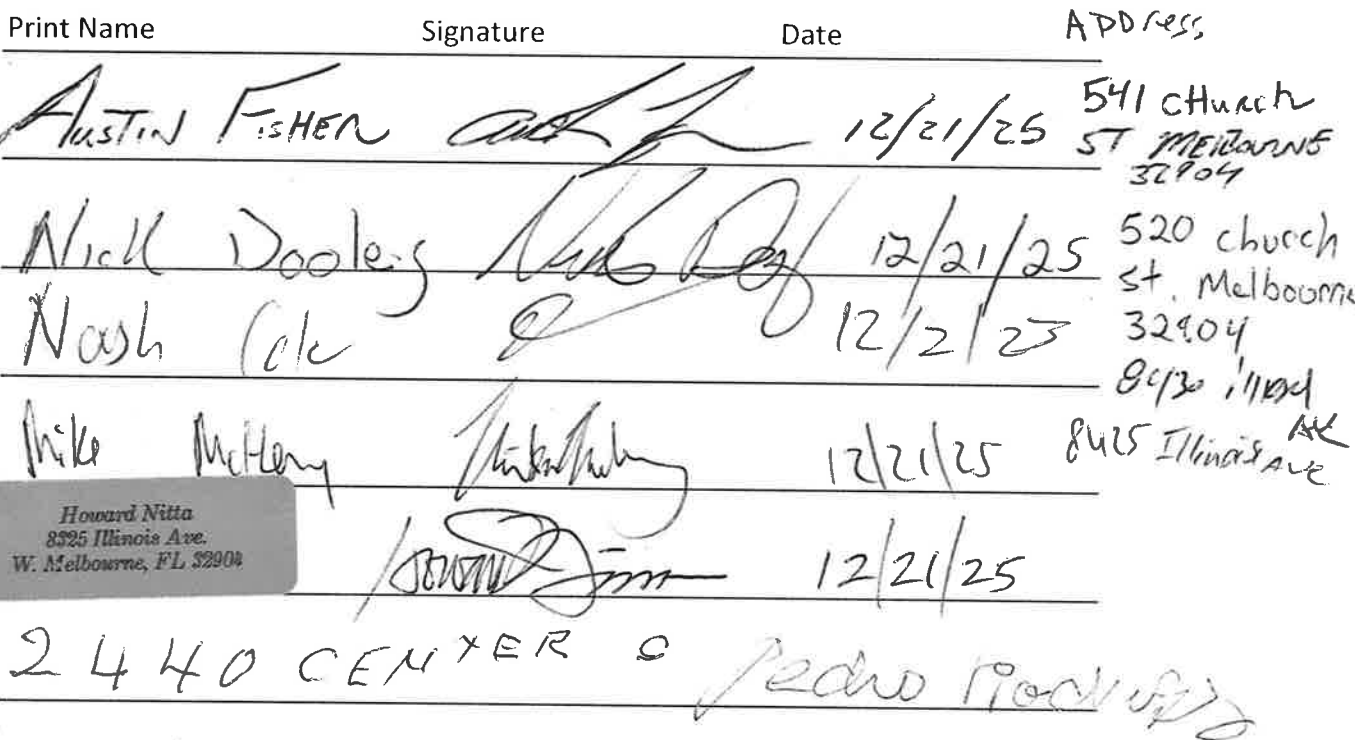 Print Name Signature Date ADDress
AUSTIN FISHER 12/21/25 541 CHurch
ST MELBOURNE
32904
Nick Dooley 12/21/25 520 church
St. Melbourne
32904
Nash 12/2/23 8430
Mike McHenry 12/21/25 8425 Illinois AVE
Howard Nitta
8325 Illinois Ave.
W. Melbourne, FL 32904
12/21/25
2440 CENTER Pedro